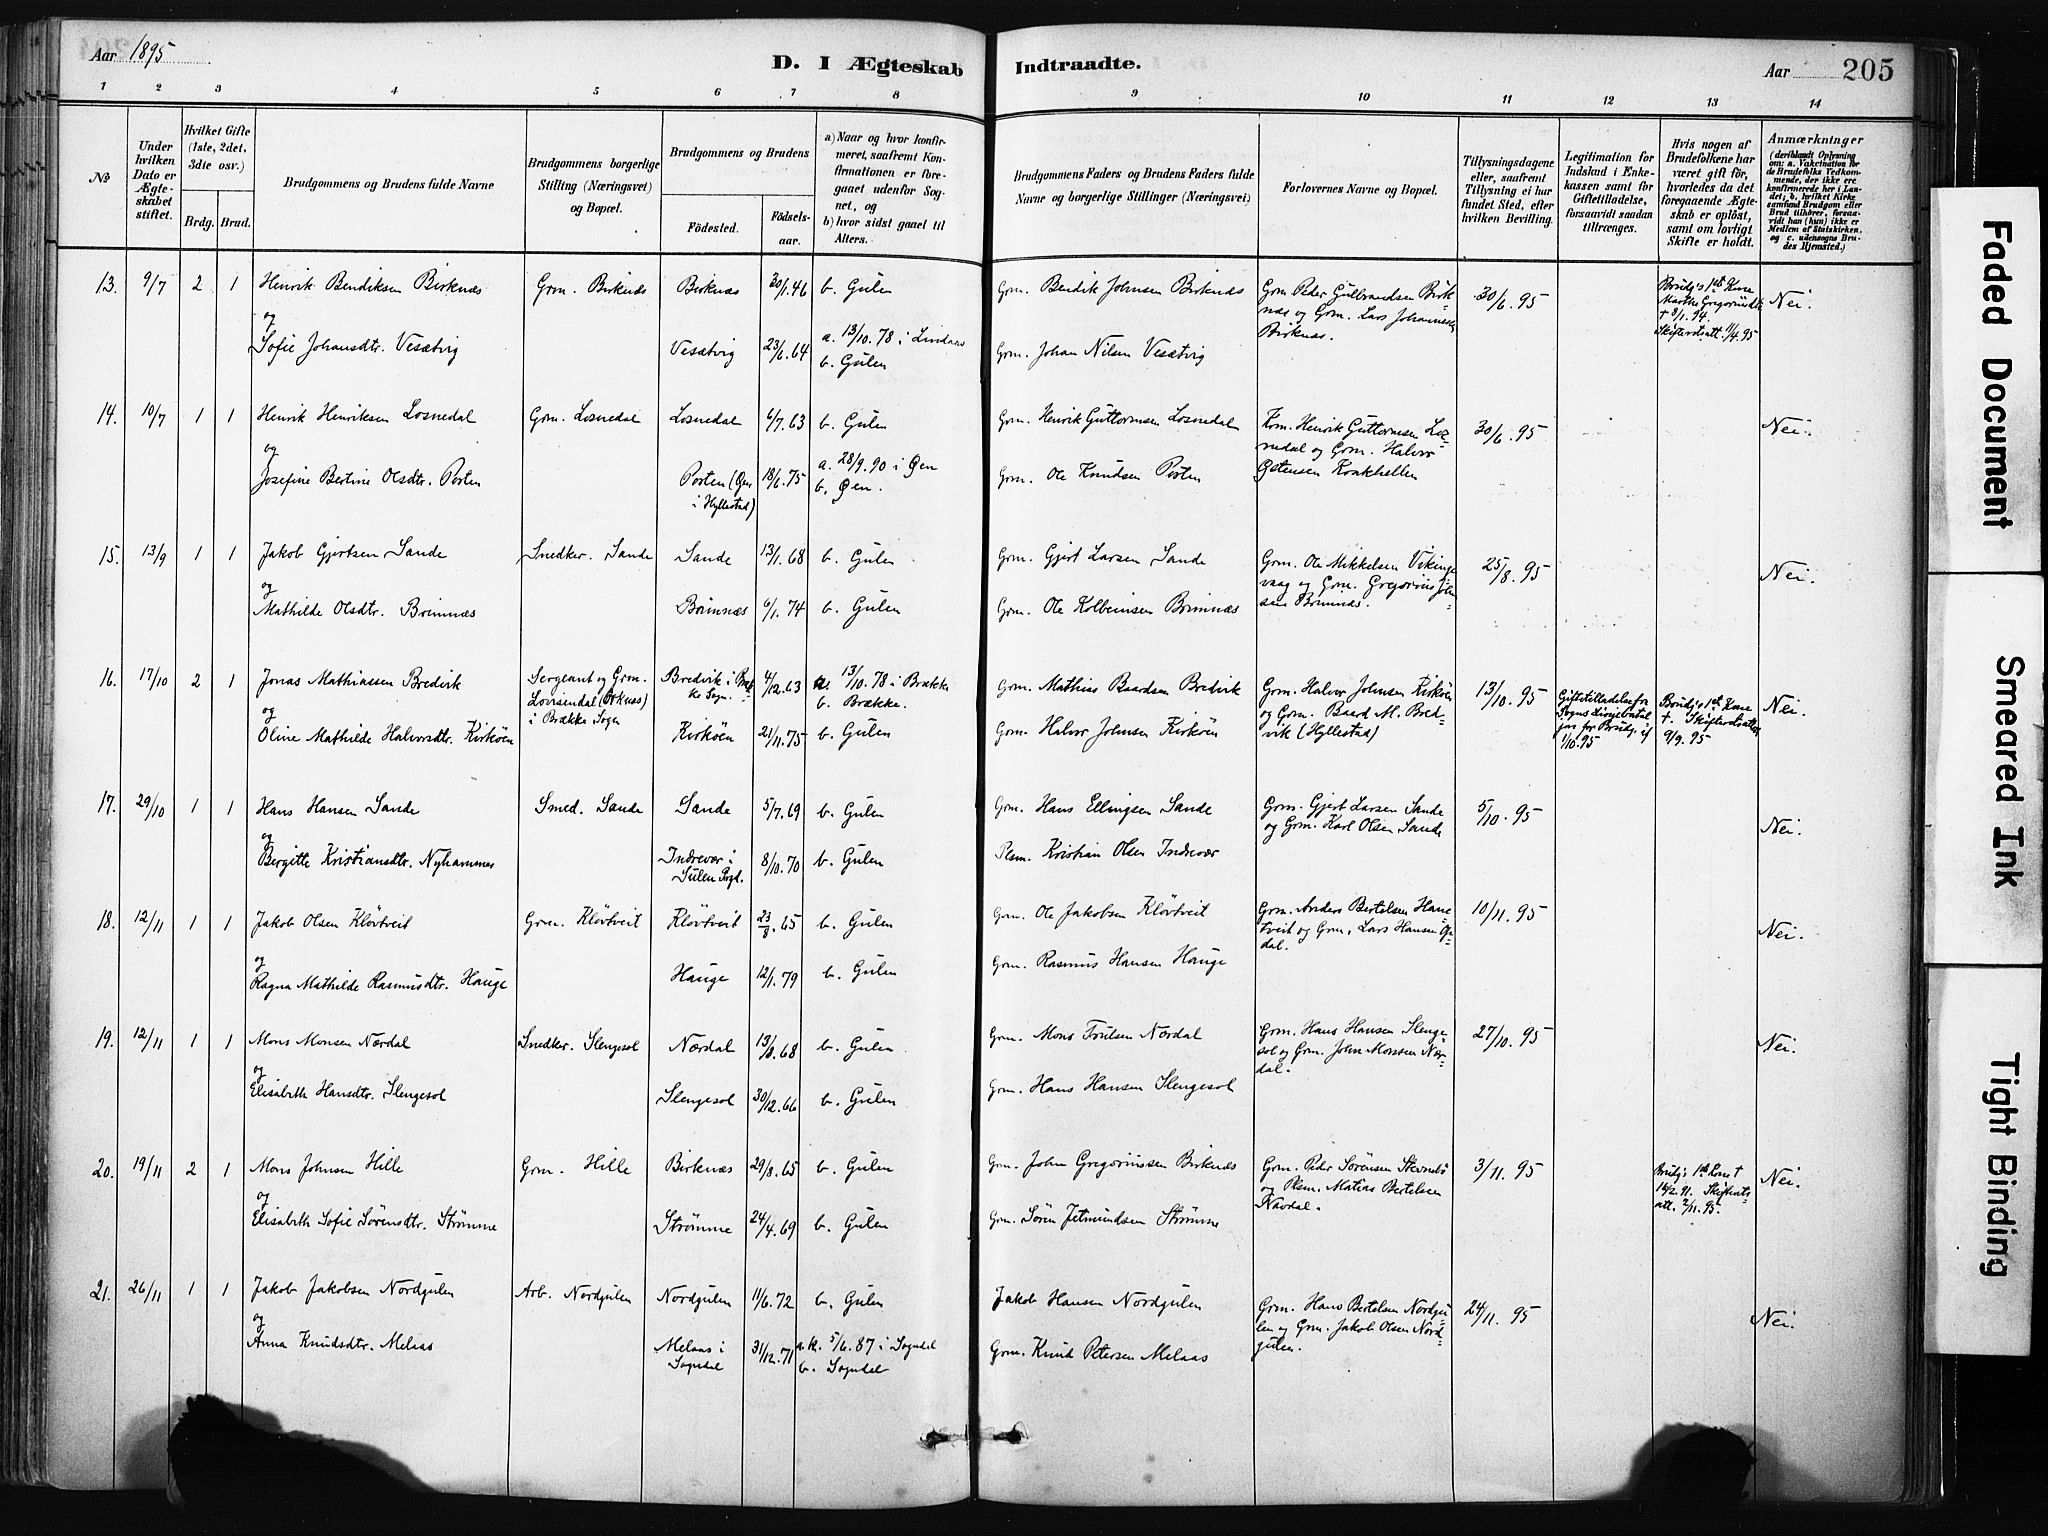 Aar 1895
D. I Ægteskab Indtraadte.
Aar 205
1 2 3 4 5 6 7 8 9 10 11 12 13 14
№
Under hvilken Dato er Ægteskabet stiftet.
Hvilket Gifte (1ste, 2det, 3die osv.)
Brdg. Brud.
Brudgommens og Brudens fulde Navne
Brudgommens borgerlige Stilling (Næringsvei) og Bopæl.
Brudgommens og Brudens
Fødested. Fødsels-aar.
a) Naar og hvor konfirmeret, saafremt Konfirmationen er foregaaet udenfor Sognet, og
b) hvor sidst gaaet til Alters.
Brudgommens Faders og Brudens Faders fulde Navne og borgerlige Stillinger (Næringsvei)
Forlovernes Navne og Bopæl.
Tillysningsdagene eller, saafremt Tillysning ei har fundet Sted, efter hvilken Bevilling.
Legitimation for Indskud i Enkekassen samt for Giftetilladelse, forsaavidt saadan tiltrænges.
Hvis nogen af Brudefolkene har været gift før, hvorledes da det foregaaende Ægteskab er opløst, samt om lovligt Skifte er holdt.
Anmærkninger
(deriblandt Oplysning om: a. Vakcination for de Brudefolks Vedkommende, der ikke ere konfirmerede her i Landet; b. hvilket Kirkesamfund Brudgom eller Brud tilhører, forsaavidt han (hun) ikke er Medlem af Statskirken, og c. udensogns Brudes Hjemsted.)
13. 9/7 2 1 Henrik Bendiksen Birknæs Grm. Birknæs Birknæs 30/1.46 b. Gulen Grm. Bendik Johnsen Birknæs Grm. Peder Gulbrandsen Birknæs og Grm. Lars Johannessen Birknæs. 30/6.95 Brudg's 1ste Kone Marthe Gregoriusdtr. + 3/1.94. Skifteretsatt. 11/4.95 Nei.
og
Sofie Johansdtr. Vesætvig Vesætvig 23/6.64 a. 13/10.78 i Lindaas b. Gulen Grm. Johan Nilsen Vesætvig
14. 10/7 1 1 Henrik Henriksen Losnedal Grm. Losnedal Losnedal 6/7.63 b. Gulen Grm. Henrik Guttormsen Losnedal Grm. Henrik Guttormsen Losnedal og Grm. Halvor Østensen Krakhellen 30/6.95 Nei.
og
Josefine Bertine Olsdtr. Porten Porten (Øen i Hyllestad) 18/6.75 a. 28/9.90 i Øen b. Øen. Grm. Ole Knudsen Porten
15. 13/9 1 1 Jakob Gjertsen Sande Snedker. Sande Sande 13/1.68 b. Gulen Grm. Gjert Larsen Sande Grm. Ole Mikkelsen Vikingevaag og Grm. Gregorius Johnsen Brimnæs. 25/8.95 Nei.
og
Mathilde Olsdtr. Brimnæs Brimnæs 6/1.74 b. Gulen Grm. Ole Kolbeinsen Brimnæs
16. 17/10 2 1 Jonas Mathiassen Bredvik Sergeant og Grm. Lovisendal i Brække Sogn Bredvik i Brække Sogn. 4/12.63 a. 13/10.78 i Brække b. Brække. Grm. Mathias Baardsen Bredvik Grm. Halvor Johnsen Kirkøen og Grm. Baard M. Bredvik (Hyllestad) 13/10.95 Giftetilladelse for Brudg. af 1/10.95 Brudg's 1ste Kone +. Skifteretsattest 9/9.95 Nei.
og
Oline Mathilde Halvorsdtr. Kirkøen Kirkøen 21/11.75 b. Gulen Grm. Halvor Johnsen Kirkøen
17. 29/10 1 1 Hans Hansen Sande Smed. Sande Sande 5/7.69 b. Gulen Grm. Hans Ellingsen Sande Grm. Gjert Larsen Sande og Grm. Karl Olsen Sande 5/10.95 Nei.
og
Bergitte Kristiansdtr. Nyhammer Indrevær i Sulen Prgd. 8/10.70 b. Gulen Plsm. Kristian Olsen Indrevær
18. 12/11 1 1 Jakob Olsen Kløvtveit Grm. Kløvtveit Kløvtveit 23/8.65 b. Gulen Grm. Ole Jakobsen Kløvtveit Grm. Anders Bertelsen Hanetveit og Grm. Lars Hansen 10/11.95 Nei.
og
Ragna Mathilde Rasmusdtr. Hauge Hauge 12/1.79 b. Gulen Grm. Rasmus Hansen Hauge
19. 12/11 1 1 Mons Monsen Nærdal Snedker. Slengesol Nærdal 13/8.68 b. Gulen Grm. Mons Trulsen Nærdal Grm. Hans Hansen Slengesol og Grm. John Monssen Nærdal. 27/10.95 Nei.
og
Elisabeth Hansdtr. Slengesol Slengesol 30/12.66 b. Gulen Grm. Hans Hansen Slengesol
20. 19/11 2 1 Mons Johnsen Hille Grm. Hille Birknæs 29/8.65 b. Gulen Grm. John Gregoriussen Birknæs Grm. Peder Sørensen og Plsm. Matias Bertelsen Navdal. 3/11.95 Brudg's 1ste Kone + 16/2.91. Skifterets att. 2/11.95. Nei.
og
Elisabeth Sofie Sørensdtr. Strømme Strømme 24/4.69 b. Gulen Grm. Søren Jetmundsen Strømme
21. 26/11 1 1 Jakob Jakobsen Nordgulen Arb. Nordgulen Nordgulen 11/6.72 b. Gulen Jakob Hansen Nordgulen Grm. Hans Bertelsen Nordgulen og Grm. Jakob Olsen Nordgulen. 24/11.95 Nei.
og
Anna Knudsdtr. Melaas Melaas i Sogndal 31/12.71 a. k. 5/6.87 i Sogndal b. Sogndal Grm. Knud Petersen Melaas
Faded Document
Smeared Ink
Tight Binding